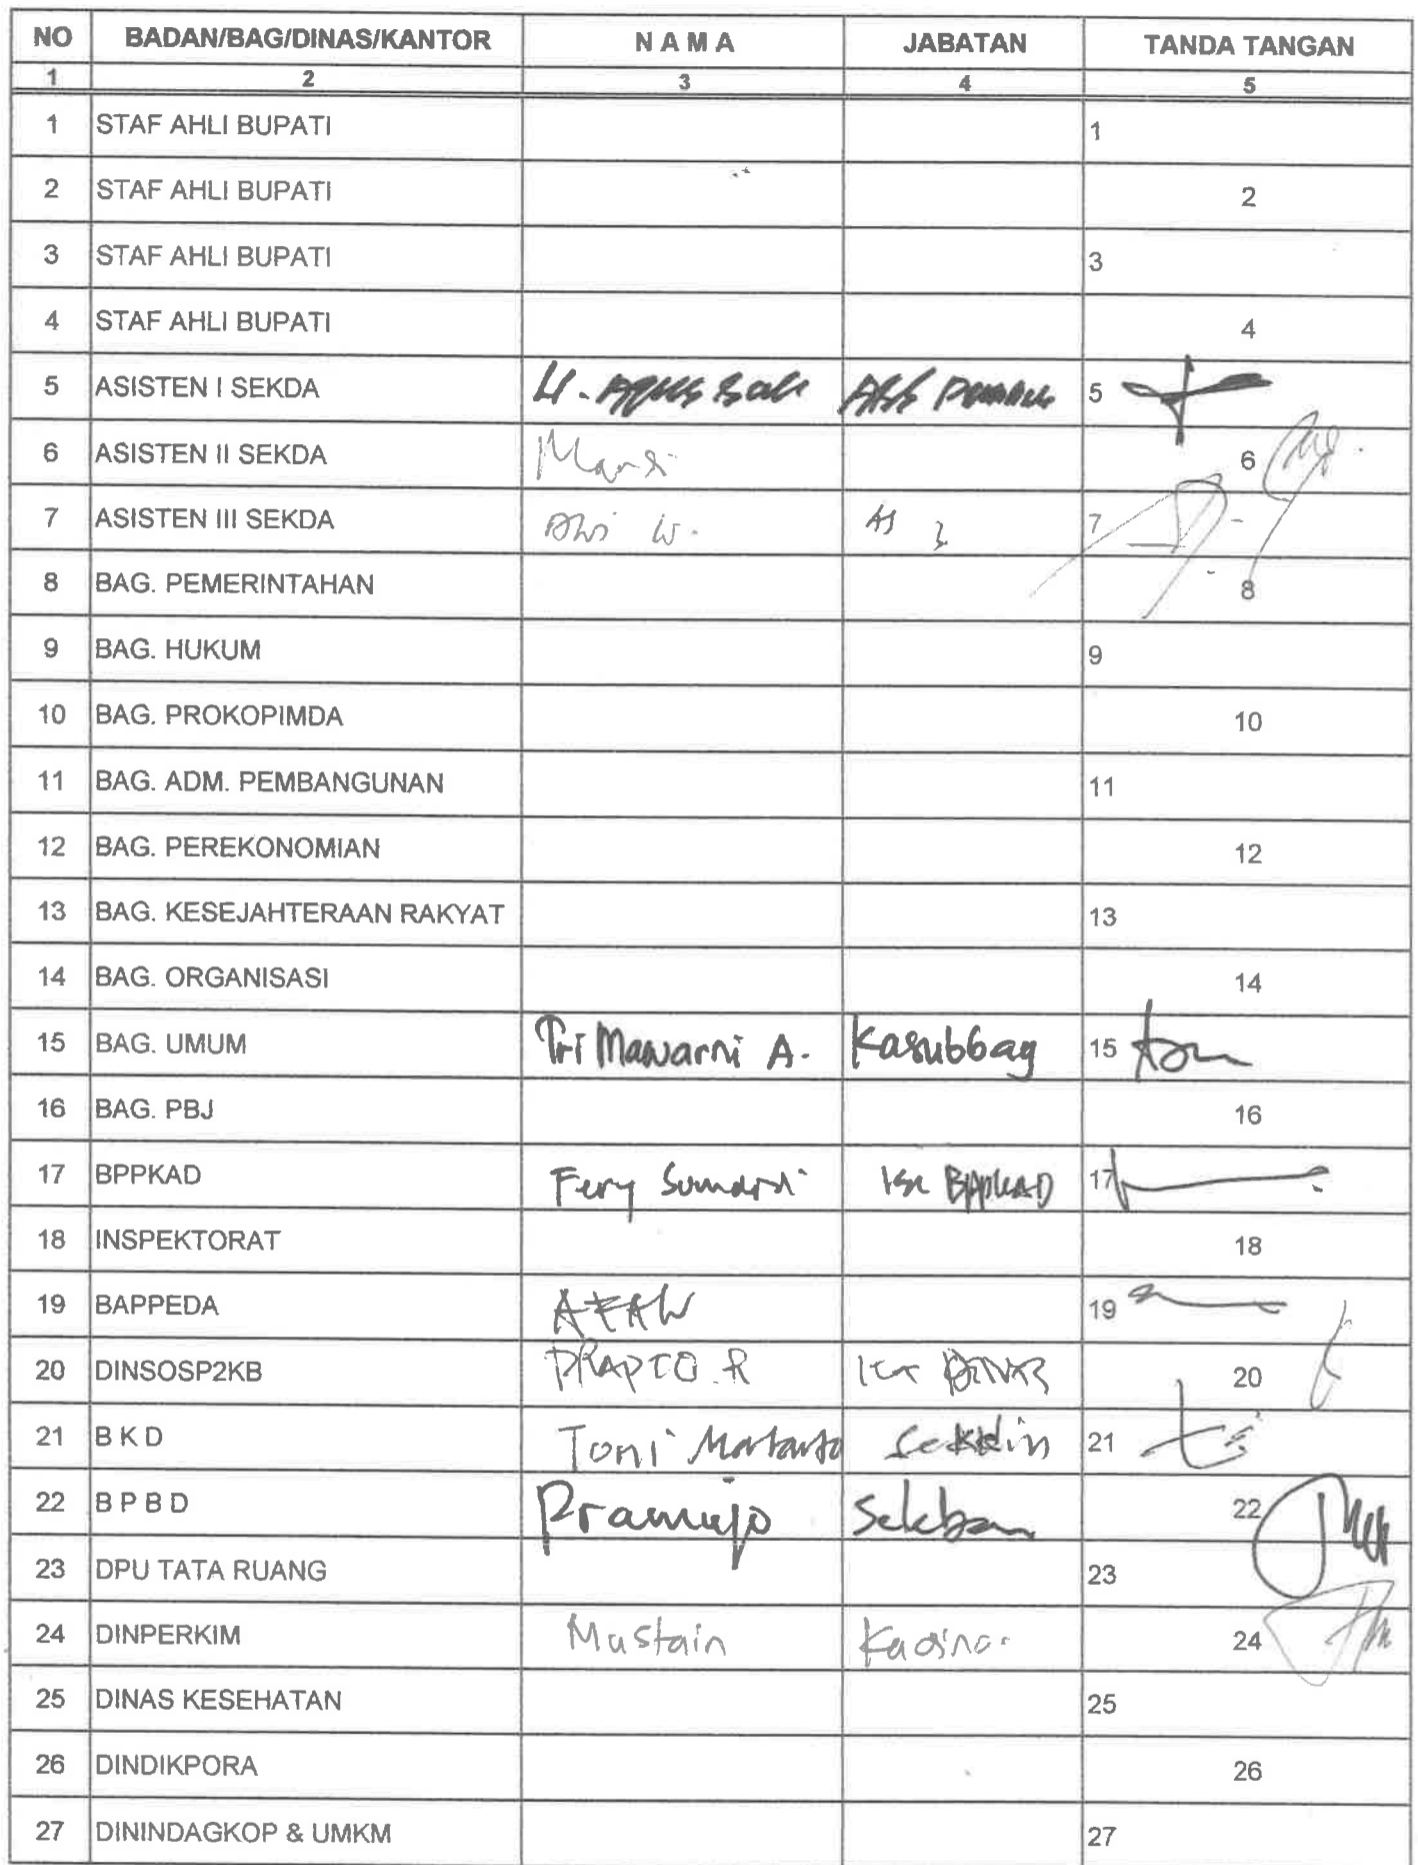 NO BADAN/BAG/DINAS/KANTOR N A M A JABATAN TANDA TANGAN
1 2 3 4 5
1 STAF AHLI BUPATI 1
2 STAF AHLI BUPATI 2
3 STAF AHLI BUPATI 3
4 STAF AHLI BUPATI 4
5 ASISTEN I SEKDA H. Agus 5
6 ASISTEN II SEKDA 6
7 ASISTEN III SEKDA W. 7
8 BAG. PEMERINTAHAN 8
9 BAG. HUKUM 9
10 BAG. PROKOPIMDA 10
11 BAG. ADM. PEMBANGUNAN 11
12 BAG. PEREKONOMIAN 12
13 BAG. KESEJAHTERAAN RAKYAT 13
14 BAG. ORGANISASI 14
15 BAG. UMUM Tri Mawarni A. Kasubbag 15
16 BAG. PBJ 16
17 BPPKAD Fery BPPKAD 17
18 INSPEKTORAT 18
19 BAPPEDA 19
20 DINSOSP2KB PRAPTO. R 20
21 B K D Toni Sekdin 21
22 B P B D Pramujo 22
23 DPU TATA RUANG 23
24 DINPERKIM Mustain 24
25 DINAS KESEHATAN 25
26 DINDIKPORA 26
27 DININDAGKOP & UMKM 27